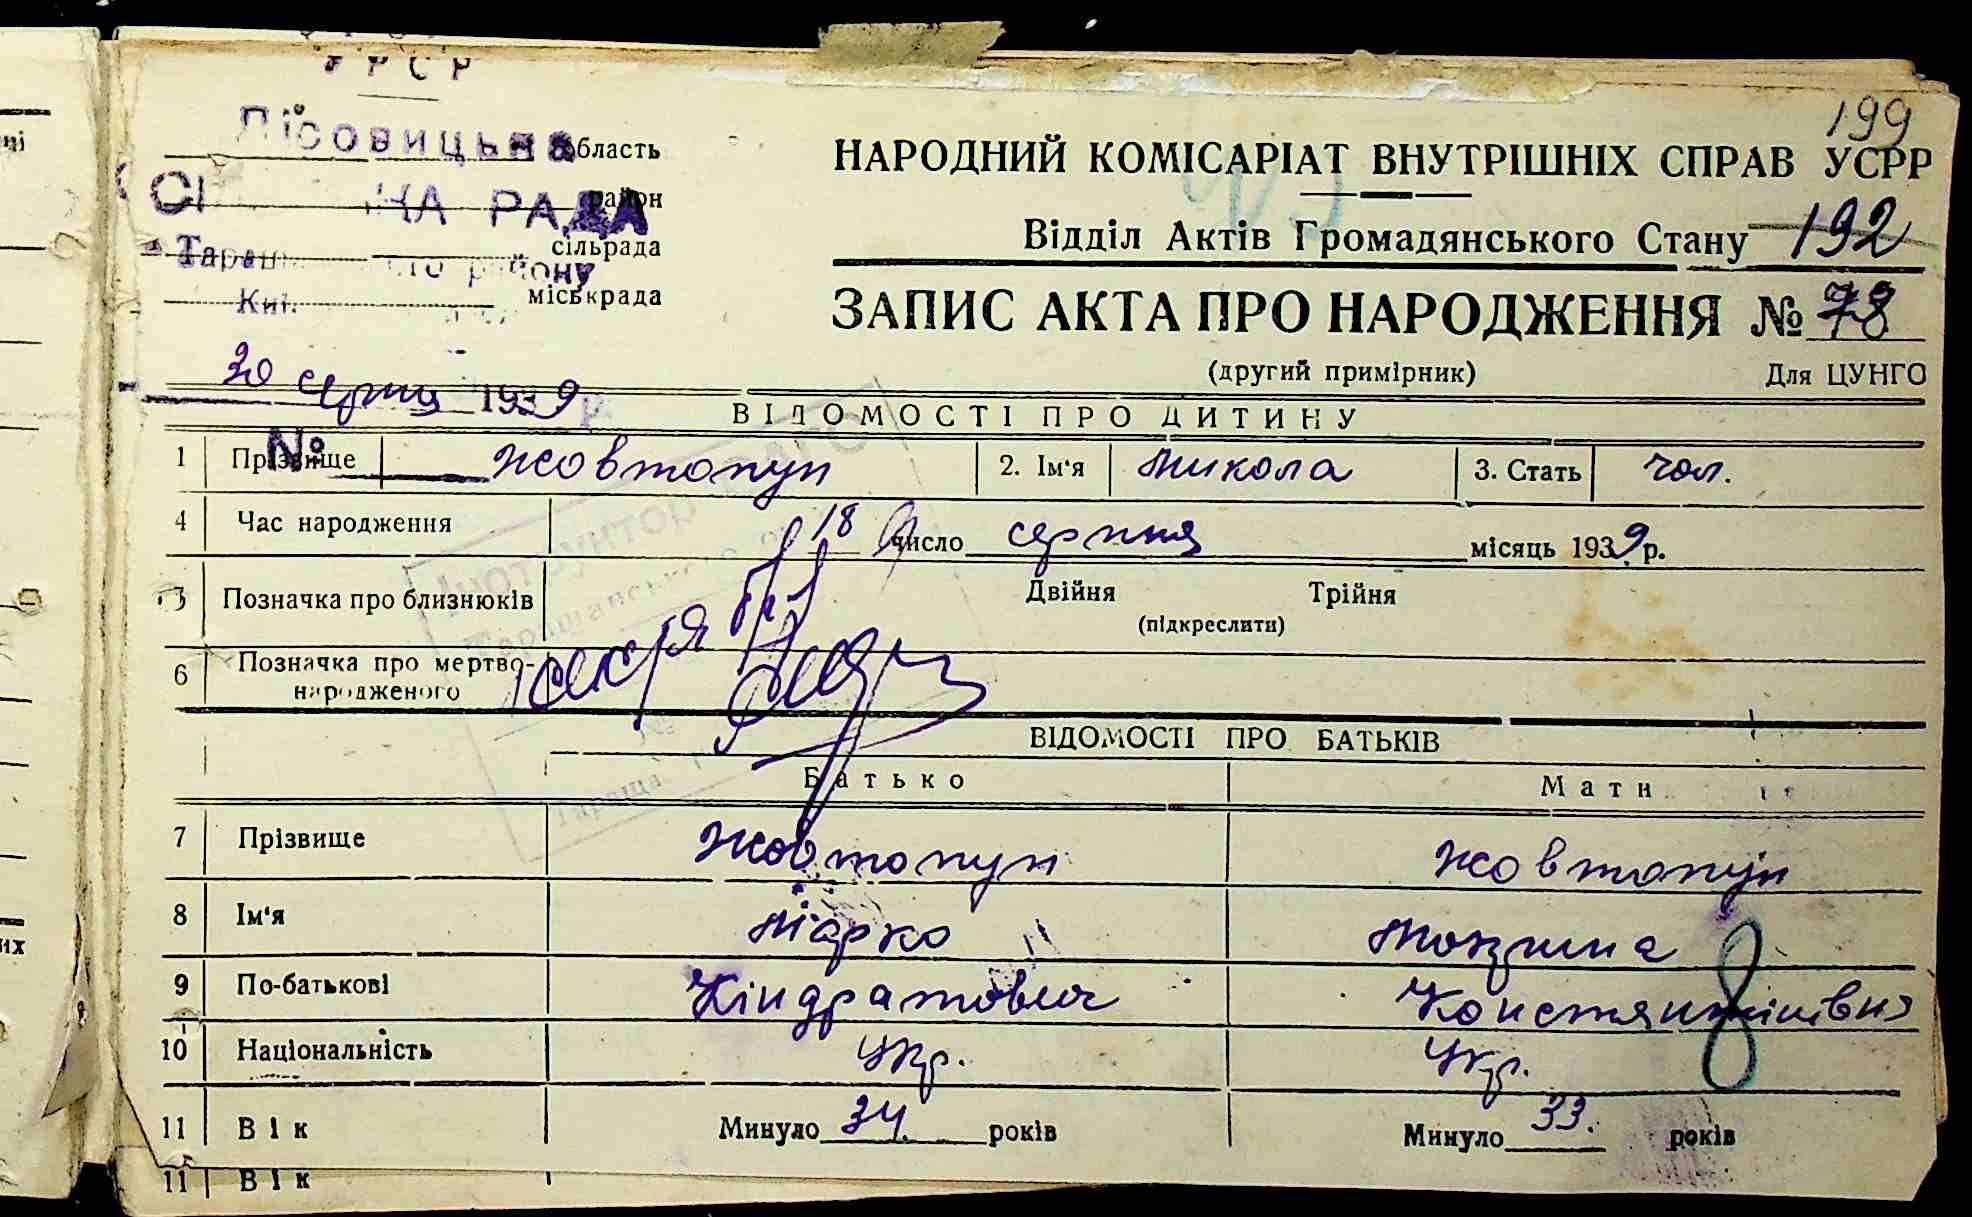 УРСР
199
Лісовицька область
НАРОДНИЙ КОМІСАРІАТ ВНУТРІШНІХ СПРАВ УСРР
НА РАДА район
сільрада
Відділ Актів Громадянського Стану 192
району
міськрада
ЗАПИС АКТА ПРО НАРОДЖЕННЯ № 78
(другий примірник) Для ЦУНГО
20 серпня 1939 р
ВІДОМОСТІ ПРО ДИТИНУ
№
1 Прізвище Жовтопуп 2. Ім'я Микола 3. Стать чол.
4 Час народження 18 число серпня місяць 1939 р.
5 Позначка про близнюків Двійня Трійня
(підкреслити)
6 Позначка про мертво-
народженого
ВІДОМОСТІ ПРО БАТЬКІВ
Батько Мати
7 Прізвище Жовтопуп Жовтопуп
8 Ім'я Марко
9 По-батькові Кіндратович Константинівна
10 Національність Укр. Укр.
11 Вік Минуло 34 років Минуло 33. років
11 Вік